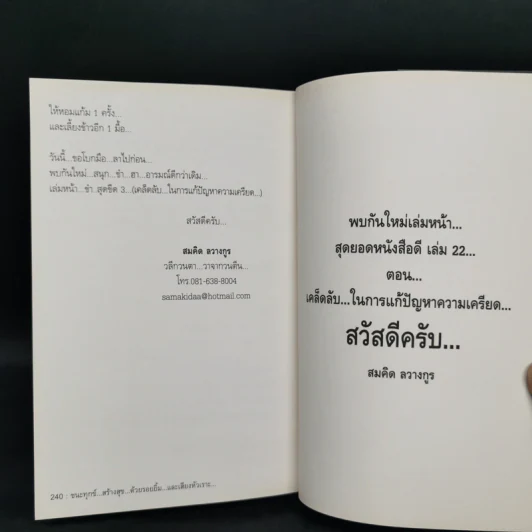 ให้หอมแก้ม 1 ครั้ง...
และเลี้ยงข้าวอีก 1 มื้อ...
วันนี้...ขอโบกมือ...ลาไปก่อน...
พบกันใหม่...สนุก...ขำ...ฮา...อารมณ์ดีกว่าเดิม...
เล่มหน้า...ขำ..สุดขีด 3...(เคล็ดลับ...ในการแก้ปัญหาความเครียด...)
สวัสดีครับ...
สมคิด ลวางกูร
วลีกวนตา...วาจากวนตีน...
โทร.081-638-8004
samakidaa@hotmail.com
240 : ชนะทุกข์...สร้างสุข...ด้วยรอยยิ้ม...และเสียงหัวเราะ...
พบกันใหม่เล่มหน้า...
สุดยอดหนังสือดี เล่ม 22...
ตอน...
เคล็ดลับ...ในการแก้ปัญหาความเครียด...
สวัสดีครับ...
สมคิด ลวางกูร